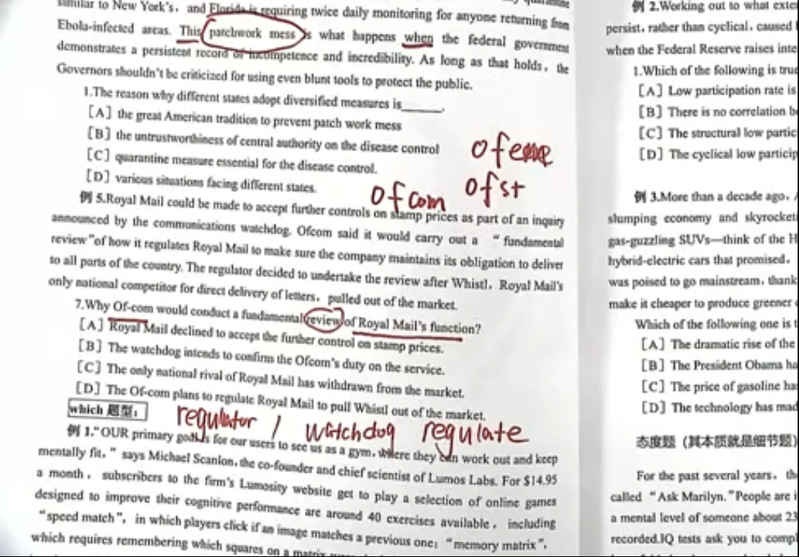 similar to New York's, and Florida is requiring twice daily monitoring for anyone returning from
Ebola-infected areas. This patchwork mess is what happens when the federal government
demonstrates a persistent record of incompetence and incredibility. As long as that holds, the
Governors shouldn't be criticized for using even blunt tools to protect the public.
1.The reason why different states adopt diversified measures is______.
[A] the great American tradition to prevent patch work mess
[B] the untrustworthiness of central authority on the disease control
[C] quarantine measure essential for the disease control.
[D] various situations facing different states.
ofcom
ofst
例 5.Royal Mail could be made to accept further controls on stamp prices as part of an inquiry
announced by the communications watchdog. Ofcom said it would carry out a "fundamental
review"of how it regulates Royal Mail to make sure the company maintains its obligation to deliver
to all parts of the country. The regulator decided to undertake the review after Whistl, Royal Mail's
only national competitor for direct delivery of letters, pulled out of the market.
7.Why Of-com would conduct a fundamental review of Royal Mail's function?
[A] Royal Mail declined to accept the further control on stamp prices.
[B] The watchdog intends to confirm the Ofcom's duty on the service.
[C] The only national rival of Royal Mail has withdrawn from the market.
[D] The Of-com plans to regulate Royal Mail to pull Whistl out of the market.
which 题型:
regulator / watchdog regulate
例 1."OUR primary goal is for our users to see us as a gym, where they can work out and keep
mentally fit," says Michael Scanlon, the co-founder and chief scientist of Lumos Labs. For $14.95
a month, subscribers to the firm's Lumosity website get to play a selection of online games
designed to improve their cognitive performance are around 40 exercises available, including
"speed match", in which players click if an image matches a previous one; "memory matrix",
which requires remembering which squares on a matrix
例 2.Working out to what
persist, rather than cyclical, caused
when the Federal Reserve raises
1.Which of the following is
[A] Low participation rate is
[B] There is no correlation
[C] The structural low
[D] The cyclical low
例 3.More than a decade ago,
slumping economy and
gas-guzzling SUVs—think of the
hybrid-electric cars that promised,
was poised to go mainstream,
make it cheaper to produce greener
Which of the following one is
[A] The dramatic rise of the
[B] The President Obama
[C] The price of gasoline
[D] The technology has
态度题（其本质就是细节题）
For the past several years,
called "Ask Marilyn."People are
a mental level of someone about
recorded.IQ tests ask you to